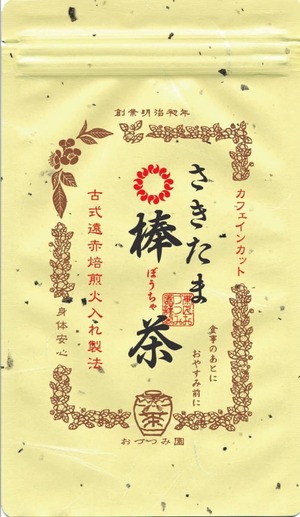 創業明治初年
カフェインカット
さきたま
棒茶
ぼうちゃ
食事のあとに
おやすみ前に
古式遠赤焙煎火入れ製法
身体安心
茶
おづつみ園